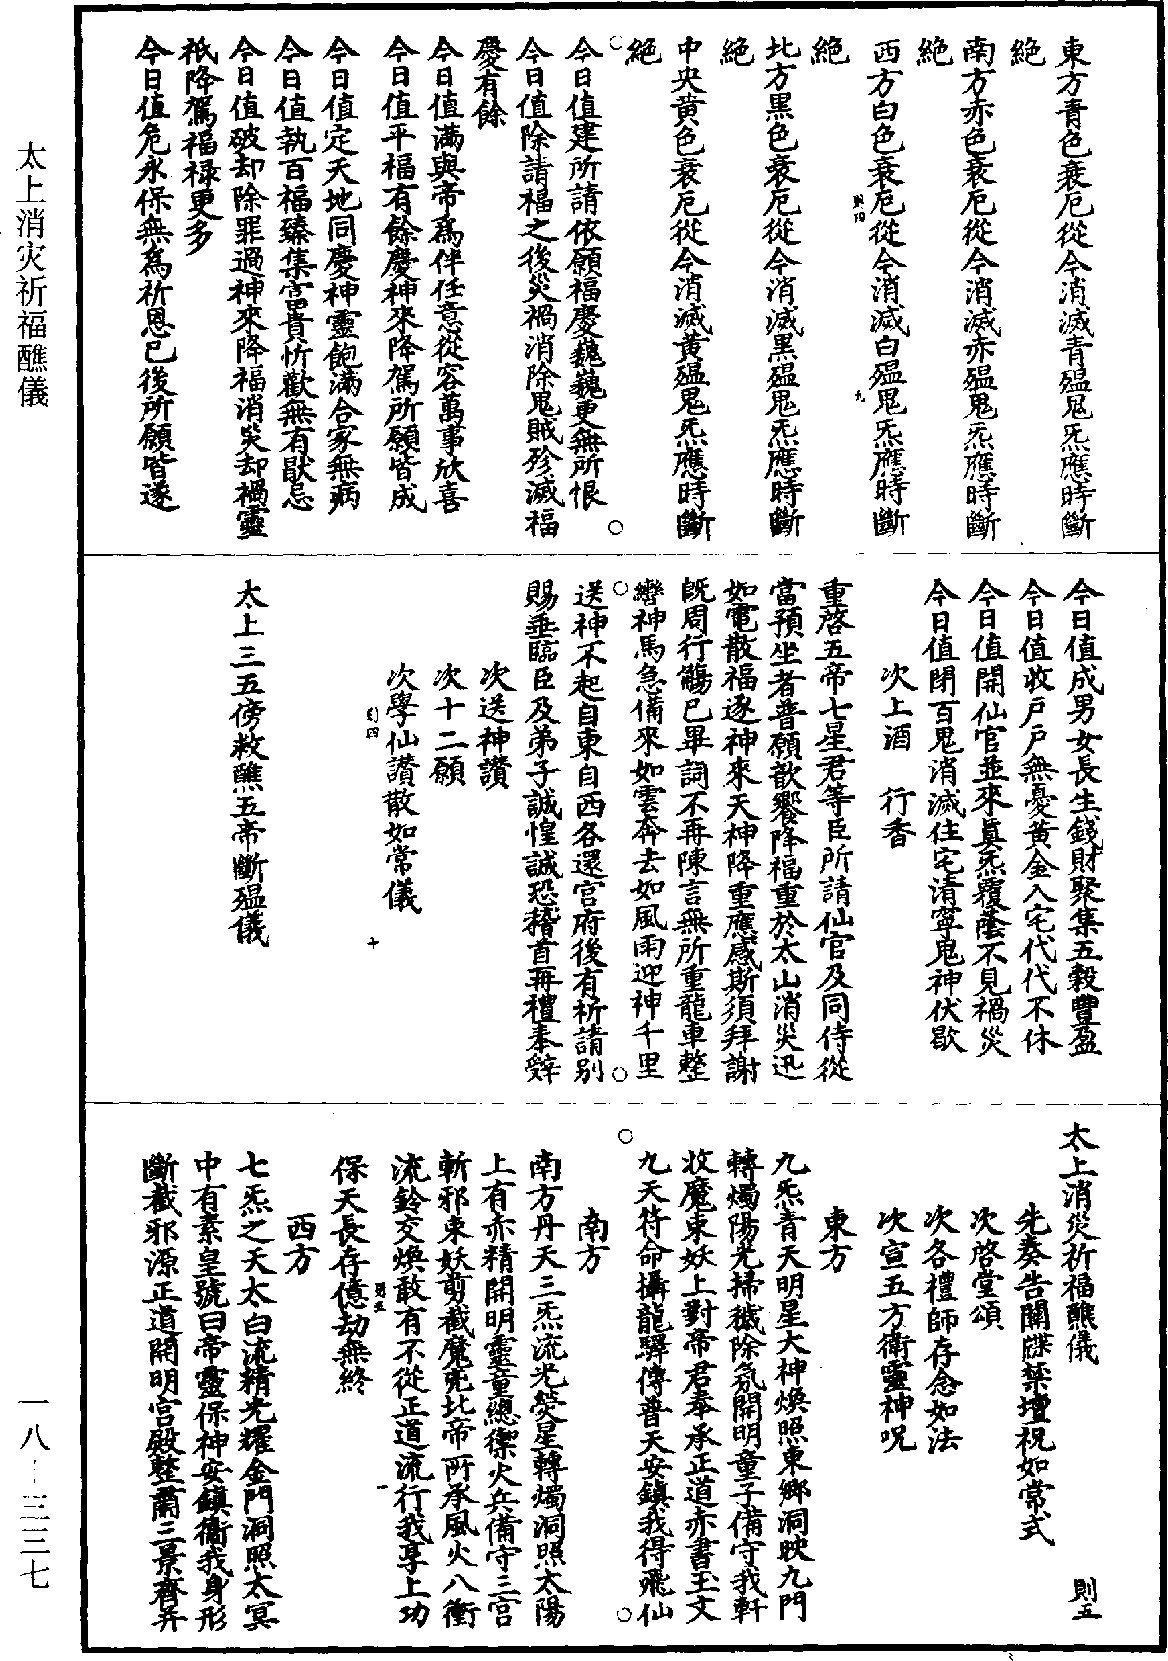 東方青色衰厄從今消滅青瘟鬼炁應時斷
絕
南方赤色衰厄從今消滅赤瘟鬼炁應時斷
絕
西方白色衰厄從今消滅白瘟鬼炁應時斷
絕
北方黑色衰厄從今消滅黑瘟鬼炁應時斷
絕
中央黃色衰厄從今消滅黃瘟鬼炁應時斷
絕
今日值建所請依願福慶巍巍更無所恨
今日值除請福之後災禍消除鬼賊殄滅福
慶有餘
今日值滿與帝為伴任意從容萬事欣喜
今日值平福有餘慶神來降駕所願皆成
今日值定天地同慶神靈飽滿合家無病
今日值執百福臻集富貴忻歡無有猒忌
今日值破却除罪過神來降福消災却禍靈
祇降駕福祿更多
今日值危永保無為祈恩已後所願皆遂
今日值成男女長生錢財聚集五穀豐盈
今日值收戶戶無憂黃金入宅代代不休
今日值開仙官並來真炁覆蔭不見禍災
今日值閉百鬼消滅住宅清寧鬼神伏歇
次上酒 行香
重啓五帝七星君等臣所請仙官及同侍從
當預坐者普願歆饗降福重於太山消災迅
如電散福逐神來天神降重應感斯須拜謝
既周行觴已畢詞不再陳言無所重龍車整
轡神馬急備來如雲奔去如風雨迎神千里
送神不起自東自西各還官府後有祈請別
賜垂臨臣及弟子誠惶誠恐稽首再禮奉辞
次送神讚
次十二願
次學仙讚散如常儀
則四
十
太上三五傍救醮五帝斷瘟儀
太上消災祈福醮儀
則五
先奏告關牒禁壇祝如常式
次啓堂頌
次各禮師存念如法
次宣五方衛靈神呪
東方
九炁青天明星大神煥照東鄉洞映九門
轉燭陽光掃穢除氛開明童子備守我軒
收魔束妖上對帝君奉承正道赤書玉文
九天符命攝龍驛傳普天安鎮我得飛仙
南方
南方丹天三炁流光熒星轉燭洞照太陽
上有赤精開明靈童總禦火兵備守三宮
斬邪束妖剪截魔兇北帝所承風火八衝
流鈴交煥敢有不從正道流行我享上功
保天長存億劫無終
西方
七炁之天太白流精光耀金門洞照太冥
中有素皇號曰帝靈保神安鎮衞我身形
斷截邪源正道開明宮殿整肅三景齊并
太上消灾祈福醮儀
一八-三三七